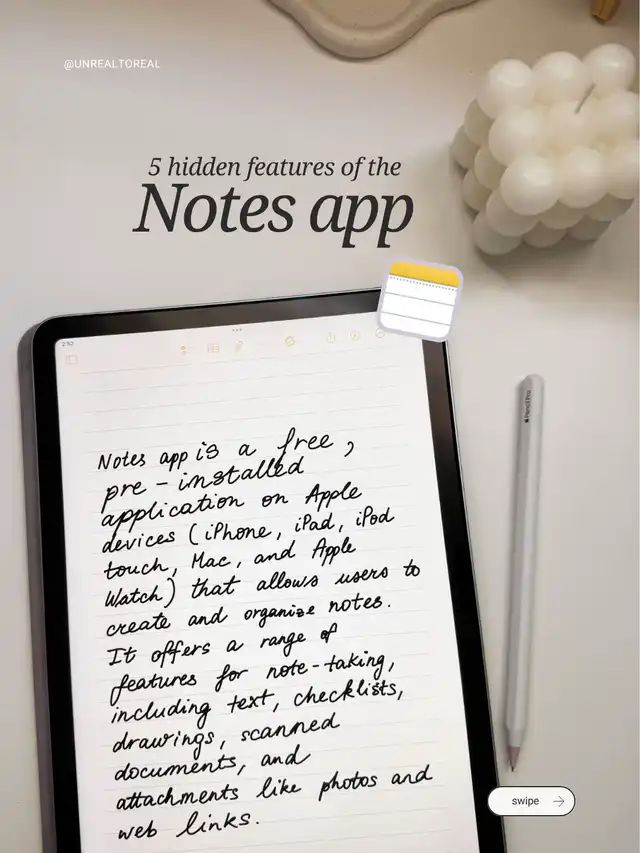 @UNREALTOREAL
5 hidden features of the
Notes app
2:50
Notes app is a free,
pre-installed
application on Apple
devices (iPhone, iPad, iPod
touch, Mac, and Apple
Watch) that allows users to
create and organize notes.
It offers a range of
features for note-taking,
including text, checklists,
drawings, scanned
documents, and
attachments like photos and
web links.
Pencil Pro
swipe